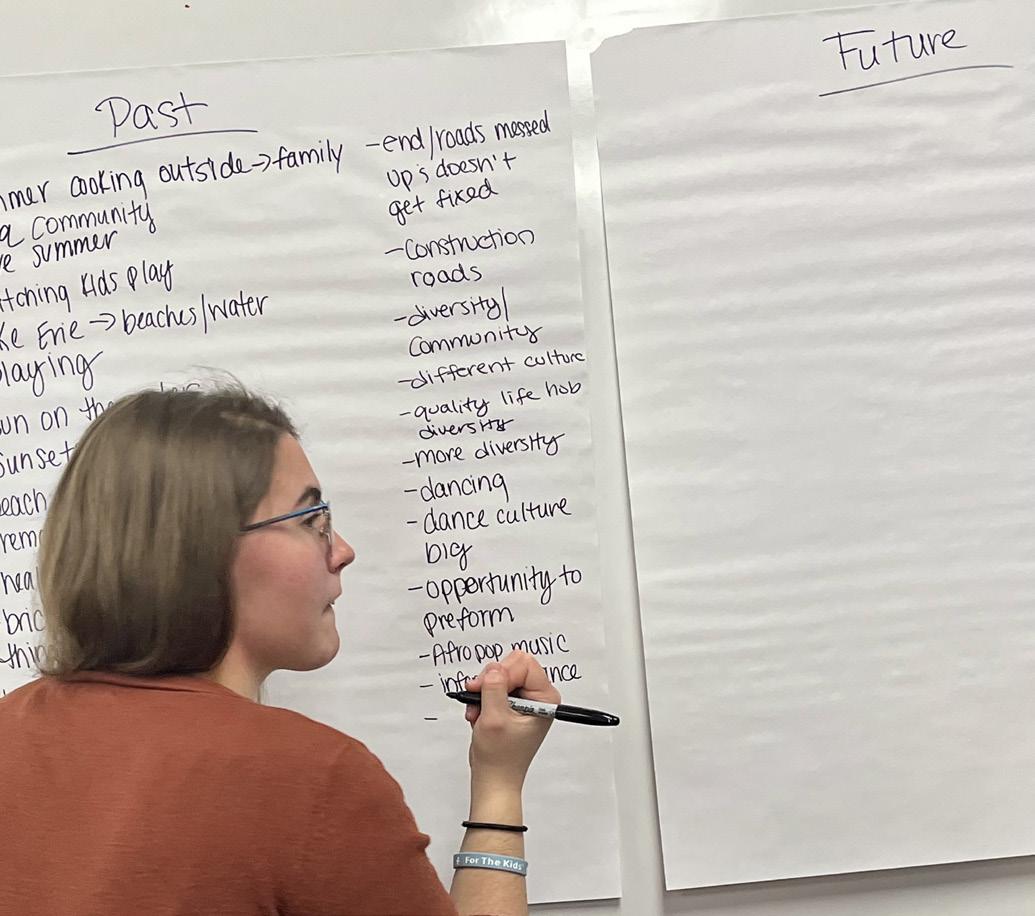 Past
cooking outside→family
a community
summer
kids play
Erie → beaches/water
playing
on the
sunset
-end/roads messed
up's doesn't
get fixed
-Construction
roads
-diversity/
Community
-different culture
-quality life hob
diversity
-more diversity
-dancing
-dance culture
big
-opportunity to
preform
-Afro pop music
-
-
Future
Sharpie
For The Kids